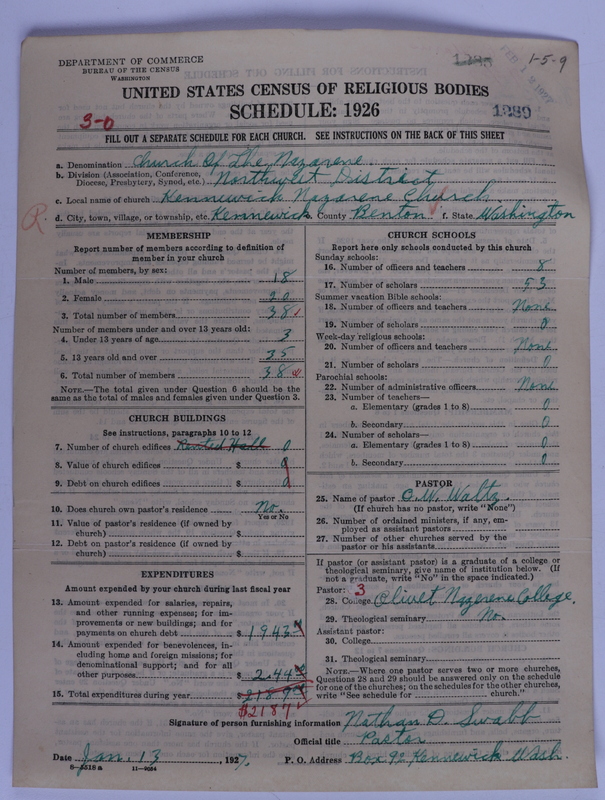 DEPARTMENT OF COMMERCE
BUREAU OF THE CENSUS
WASHINGTON
1-5-9
UNITED STATES CENSUS OF RELIGIOUS BODIES
SCHEDULE: 1926
1289
3-0
FILL OUT A SEPARATE SCHEDULE FOR EACH CHURCH. SEE INSTRUCTIONS ON THE BACK OF THIS SHEET
a. Denomination Church Of The Nazarene
b. Division (Association, Conference, Diocese, Presbytery, Synod, etc.) Northwest District
c. Local name of church Kennewick Nazarene Church
R. d. City, town, village, or township, etc. Kennewick County Benton f. State Washington
MEMBERSHIP
Report number of members according to definition of
member in your church
Number of members, by sex:
1. Male 18
2. Female 20
3. Total number of members 38
Number of members under and over 13 years old:
4. Under 13 years of age 3
5. 13 years old and over 35
6. Total number of members 38
NOTE.—The total given under Question 6 should be
the same as the total of males and females given under Question 3.
CHURCH BUILDINGS
See instructions, paragraphs 10 to 12
7. Number of church edifices Rented Hall 0
8. Value of church edifices $ 0
9. Debt on church edifices $ 0
10. Does church own pastor's residence No.
Yes or No
11. Value of pastor's residence (if owned by
church) $
12. Debt on pastor's residence (if owned by
church) $
EXPENDITURES
Amount expended by your church during last fiscal year
13. Amount expended for salaries, repairs,
and other running expenses; for im-
provements or new buildings; and for
payments on church debt $ 1943
14. Amount expended for benevolences, in-
cluding home and foreign missions; for
denominational support; and for all
other purposes $ 244
15. Total expenditures during year $ 2187
$2187
CHURCH SCHOOLS
Report here only schools conducted by this church
Sunday schools:
16. Number of officers and teachers 8
17. Number of scholars 53
Summer vacation Bible schools:
18. Number of officers and teachers None
19. Number of scholars 0
Week-day religious schools:
20. Number of officers and teachers None
21. Number of scholars 0
Parochial schools:
22. Number of administrative officers None
23. Number of teachers—
a. Elementary (grades 1 to 8) 0
b. Secondary 0
24. Number of scholars—
a. Elementary (grades 1 to 8) 0
b. Secondary 0
PASTOR
25. Name of pastor O. W. Waltz.
(If church has no pastor, write "None")
26. Number of ordained ministers, if any, em-
ployed as assistant pastors
27. Number of other churches served by the
pastor or his assistants
If pastor (or assistant pastor) is a graduate of a college or
theological seminary, give name of institution below. (If
not a graduate, write "No" in the space indicated.)
Pastor: 3
28. College Olivet Nazerene College.
29. Theological seminary No.
Assistant pastor:
30. College
31. Theological seminary
NOTE.—Where one pastor serves two or more churches,
Questions 28 and 29 should be answered only on the schedule
for one of the churches; on the schedules for the other churches,
write "See schedule for church."
Signature of person furnishing information Nathan D. Swabb
Official title Pastor
Date Jan. 13, 1927. P. O. Address Box 92 Kennewick Wash.
8—5518 a 11—9054